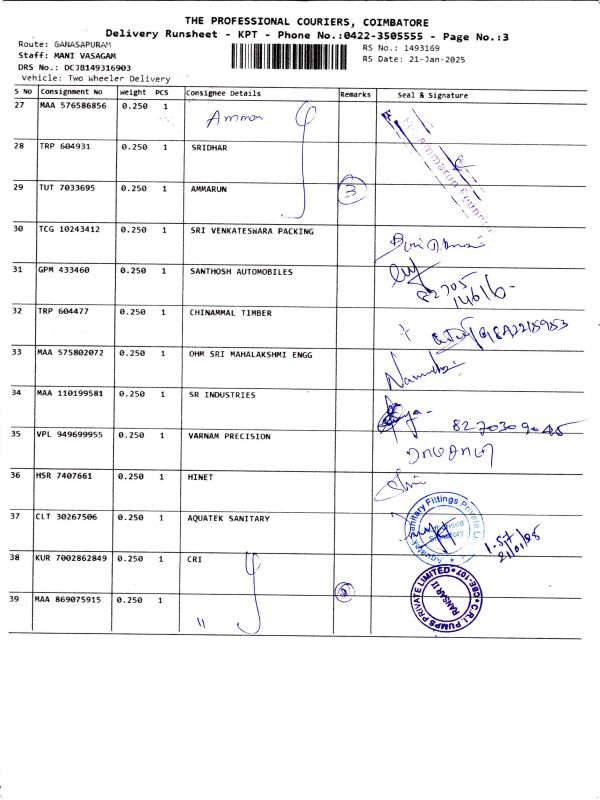 THE PROFESSIONAL COURIERS, COIMBATORE
Delivery Runsheet - KPT - Phone No.:0422-3505555 - Page No.:3
Route: GANASAPURAM
RS No.: 1493169
Staff: MANI VASAGAM
RS Date: 21-Jan-2025
DRS No.: DCJB149316903
Vehicle: Two Wheeler Delivery
S No Consignment No Weight PCS Consignee Details Remarks Seal & Signature
27 MAA 576586856 0.250 1 Ammon
28 TRP 604931 0.250 1 SRIDHAR
29 TUT 7033695 0.250 1 AMMARUN 3
30 TCG 10243412 0.250 1 SRI VENKATESWARA PACKING
31 GPM 433460 0.250 1 SANTHOSH AUTOMOBILES
32 TRP 604477 0.250 1 CHINAMMAL TIMBER
33 MAA 575802072 0.250 1 OHM SRI MAHALAKSHMI ENGG
34 MAA 110199581 0.250 1 SR INDUSTRIES
8270309045
35 VPL 949699955 0.250 1 VARNAM PRECISION
36 HSR 7407661 0.250 1 HINET
37 CLT 30267506 0.250 1 AQUATEK SANITARY
Aquatek Sanitary Fittings Private Li
Authorised
Signatory
1.57
21/01/25
38 KUR 7002862849 0.250 1 CRI
C.R.I. PUMPS PRIVATE LIMITED * CBE-107 *
39 MAA 869075915 0.250 1 " 2